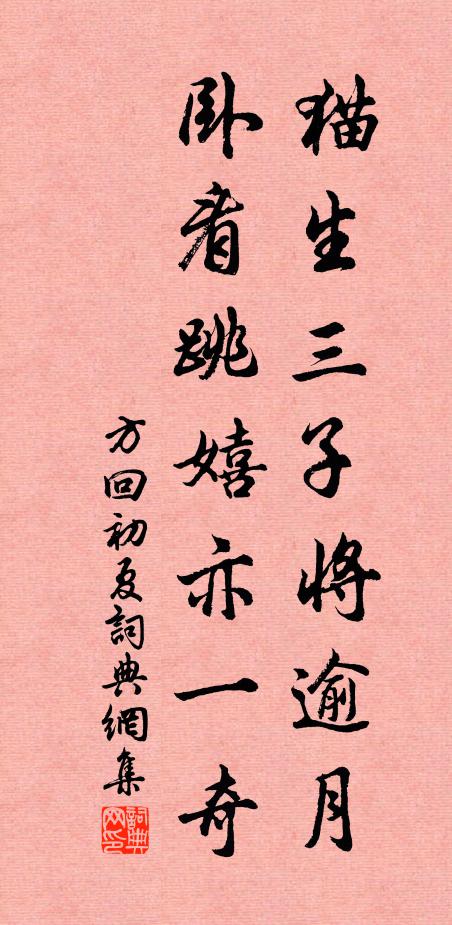 猫生三子将逾月
卧看跳嬉亦一奇
方回初夏詞典網集
詞典網印